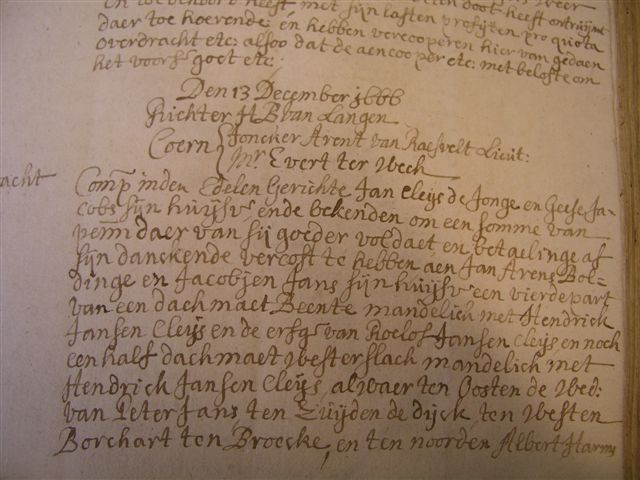 En toebehoord heeft met sijn lasten profijten pro quota
daer toe hoerende; en hebben vercoperen hier van gedaen
overdracht etc: alsoo dat de aencooper etc: met beloste om
het voors: goet etc:
Den 13 December 1666
Richter H B van Langen
Coern { Joncker Arent van Raesvelt Lieut:
Mr. Evert ter Wech
acht Comp. inden Edelen Gerichte Jan Cleijs de Jonge en Geese Ja-
cobs sijn huijsv. ende bekenden om een somme van
penn. daer van sij goeder voldaet en betaelinge af
sijn danckende vercoft te hebben aen Jan Arens Bol-
dinge en Jacobjen Jans sijn huijsv. een vierdepart
van een dachmaet Beente mandelich met Hendrick
Jansen Cleijs en de erfg. van Roelof Jansen Cleijs en noch
een half dachmaet Westerslach mandelich met
Hendrick Jansen Cleijs, alwaer ten Oosten de Wed:
van Peter Jans ten Zuijden de dijck, ten Westen
Borchart ten Broecke, en ten noorden Albert Harms